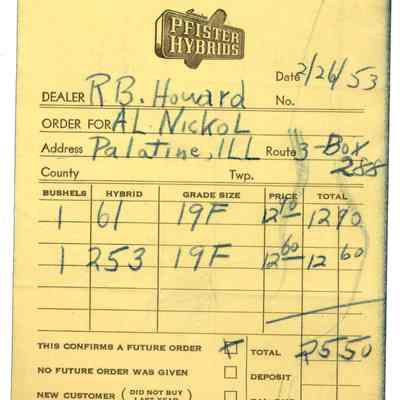 Genuine
PFISTER
HYBRIDS
Date 2/26/53
DEALER R B. Howard No.
ORDER FOR AL Nickol
Address Palatine, ILL Route 3-Box
288
County Twp.
BUSHELS HYBRID GRADE SIZE PRICE TOTAL
1 61 19F 12.90 12 90
1 253 19F 12.60 12 60
THIS CONFIRMS A FUTURE ORDER X TOTAL 25 50
NO FUTURE ORDER WAS GIVEN DEPOSIT
NEW CUSTOMER (DID NOT BUY LAST YEAR)